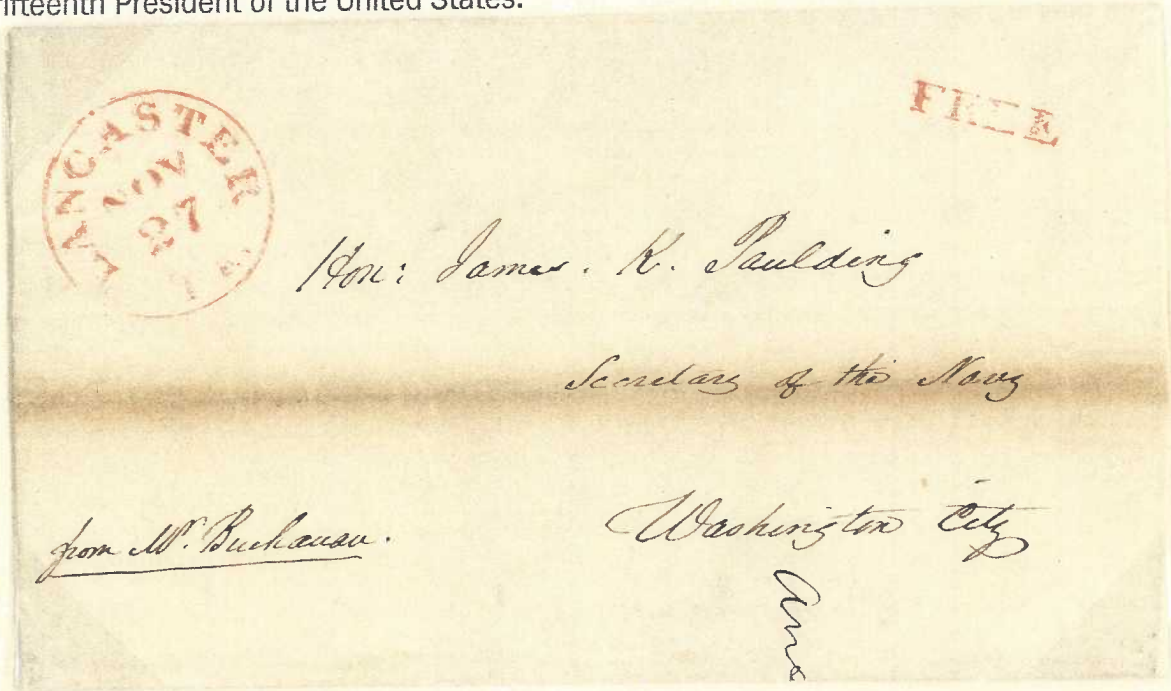 fifteenth President of the United States.
LANCASTER
NOV
27
FREE
Hon: James. K. Paulding
Secretary of the Navy
Washington City
from Mr. Buchanan.